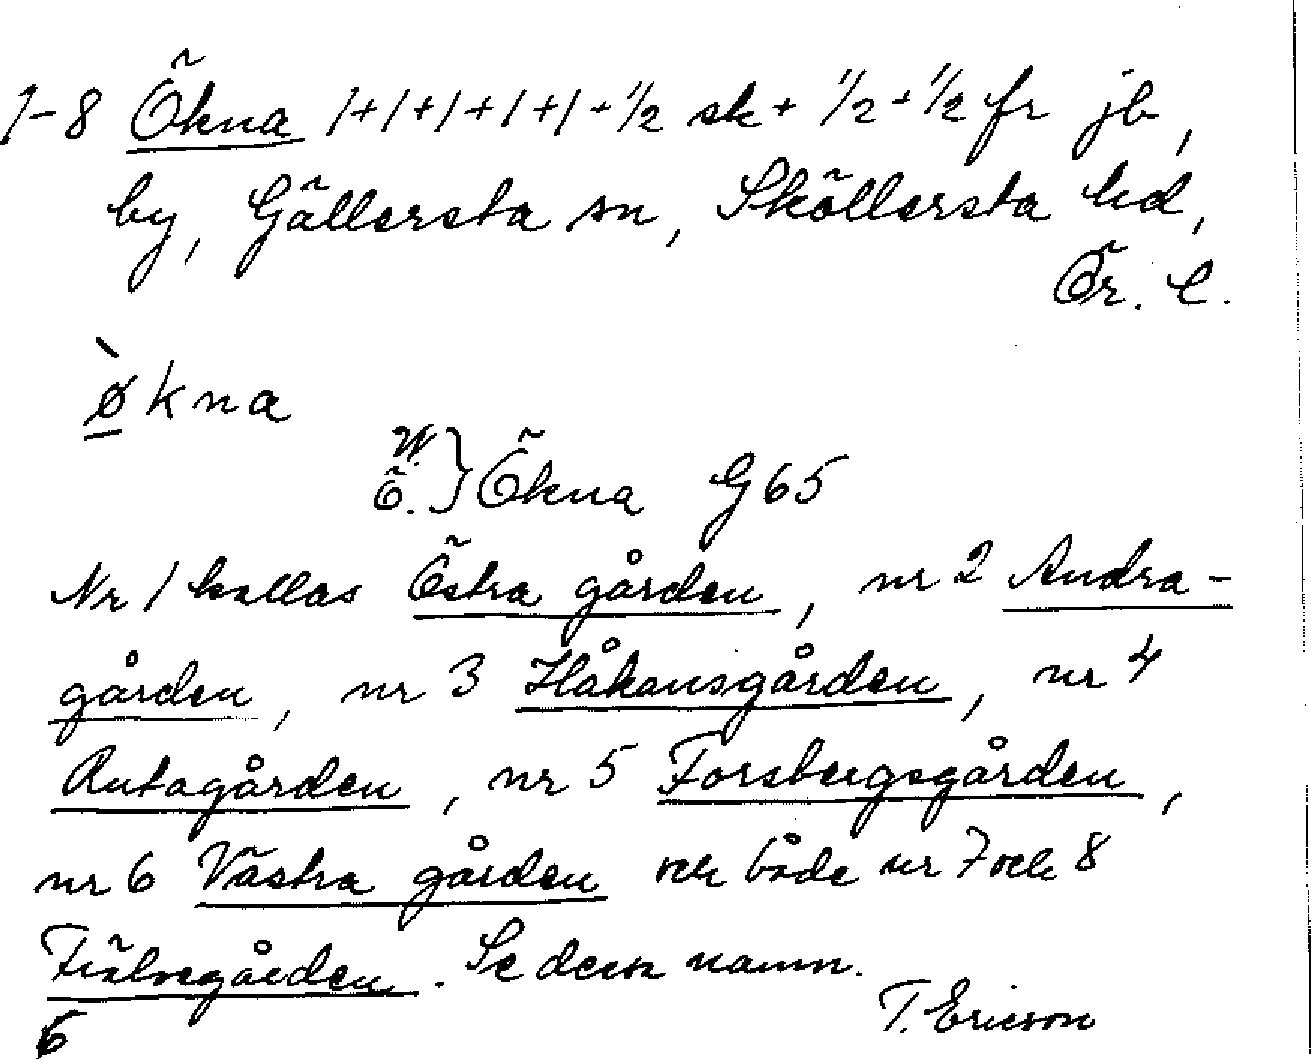 1-8 Ökna 1+1+1+1+1+1/2 sk + 1/2 + 1/2 fr jb,
by, Gällersta sn, Sköllersta hd,
Ör. l.
økna
V. Ö. } Ökna G65
Nr 1 kallas Östra gården, nr 2 Andra-
gården, nr 3 Håkansgården, nr 4
Antagården, nr 5 Forsbergsgården,
nr 6 Västra gården och både nr 7 och 8
. Se dessa namn.
T. Ericson
6